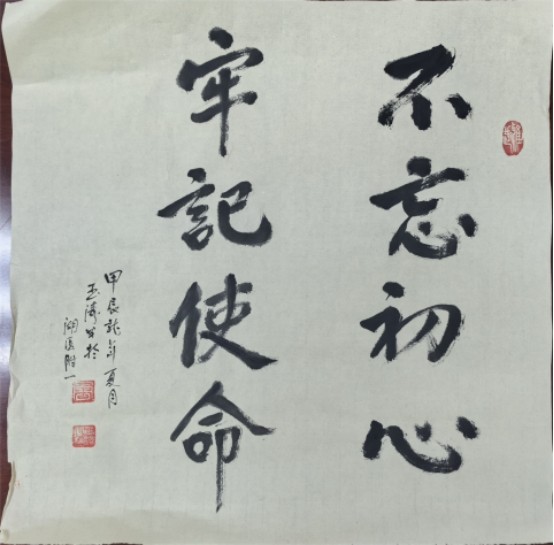 不忘初心
牢記使命
甲辰龍年夏月
玉濤書於
湖滨